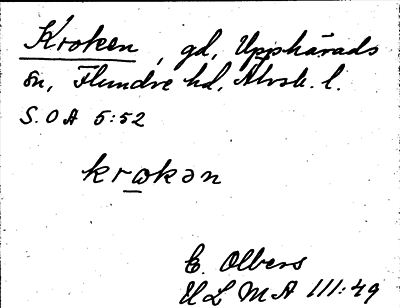 Kroken, gd, Upphärads
sn, Flundre hd, Älvsb. l.
S.O Ä 5:52
krωkən
E. Olbers
ULMA 111:49